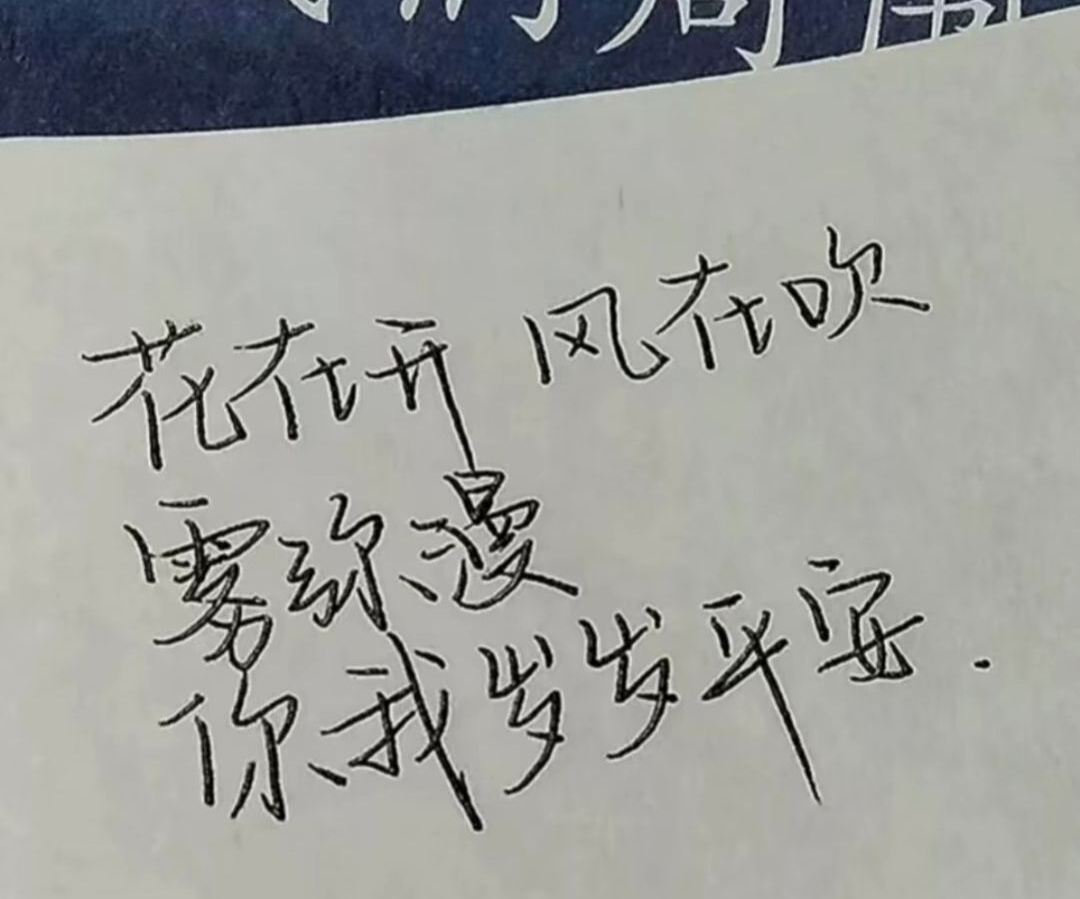 花在开 风在吹
雾弥漫
你我岁岁平安.